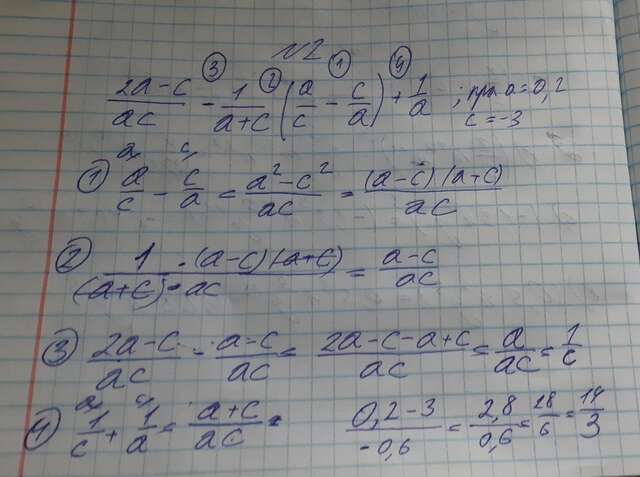 №2
③ ② ① ④
(2a-c)/(ac) - 1/(a+c) (a/c - c/a) + 1/a ; при a=0,2
c=-3
① a/c - c/a = (a²-c²)/(ac) = ((a-c)(a+c))/(ac)
② (1·(a-c)(a+c))/((a+c)·ac) = (a-c)/(ac)
③ (2a-c)/(ac) - (a-c)/(ac) = (2a-c-a+c)/(ac) = a/(ac) = 1/c
④ 1/c + 1/a = (a+c)/(ac) = (0,2-3)/(-0,6) = 2,8/0,6 = 28/6 = 14/3